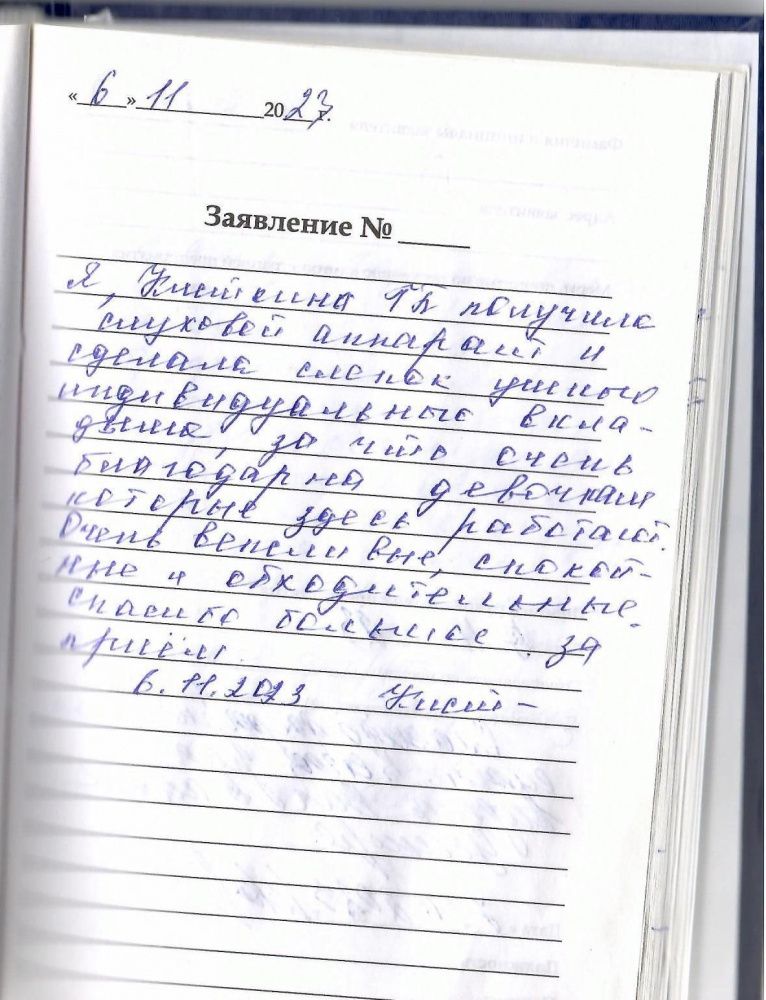 «6» 11 2023 г.
Заявление № ____
Я, Кисткина ГБ получила
слуховой аппарат и
сделала слепок ушного
индивидуального вкла-
дыша, за что очень
благодарна девочкам
которые здесь работают.
Очень вежливые, спокой-
ные и обходительные.
спасибо большое за
приём.
6.11.2023 Кист-